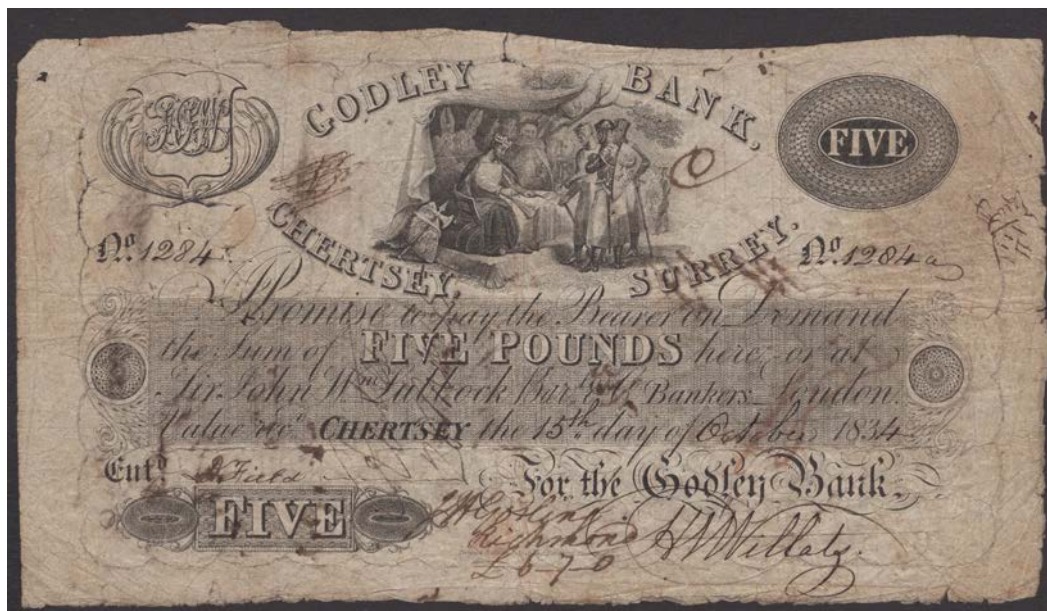 GODLEY BANK,
CHERTSEY, SURREY.
FIVE
No. 1284 No. 1284
I Promise to pay the Bearer on Demand
the Sum of FIVE POUNDS here, or at
Sir John Wm. Lubbock Bart. & Co. Bankers London.
Value recd. CHERTSEY the 15th day of October 1834
Entd. Field For the Godley Bank.
FIVE
Richmond
£ 6-7-0